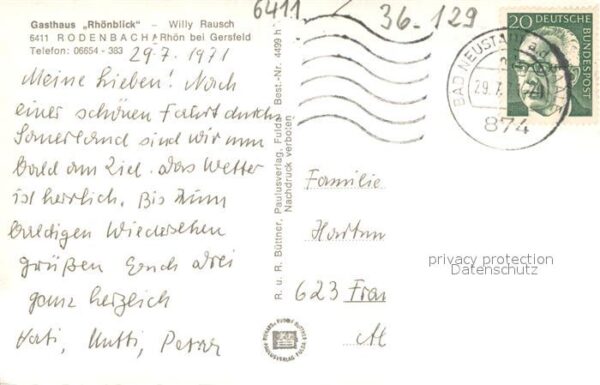 Gasthaus „Rhönblick" – Willy Rausch
6411 RODENBACH/Rhön bei Gersfeld
Telefon: 06654 - 383
29.7.1971
Meine Lieben! Nach
einer schönen Fahrt durchs
Sauerland sind wir nun
bald am Ziel. Das Wetter
ist herrlich. Bis zum
baldigen Wiedersehen
grüßen Euch drei
ganz herzlich
Kati, Mutti, Peter
R. u. R. Büttner, Paulusverlag, Fulda, Best.-Nr. 4499 h
Nachdruck verboten
6411
36-129
20 DEUTSCHE
BUNDESPOST
BAD NEUSTADT a.d.
29.7.
874
Familie
Hartun
623 Fran
privacy protection
Datenschutz
PAULUSVERLAG FULDA